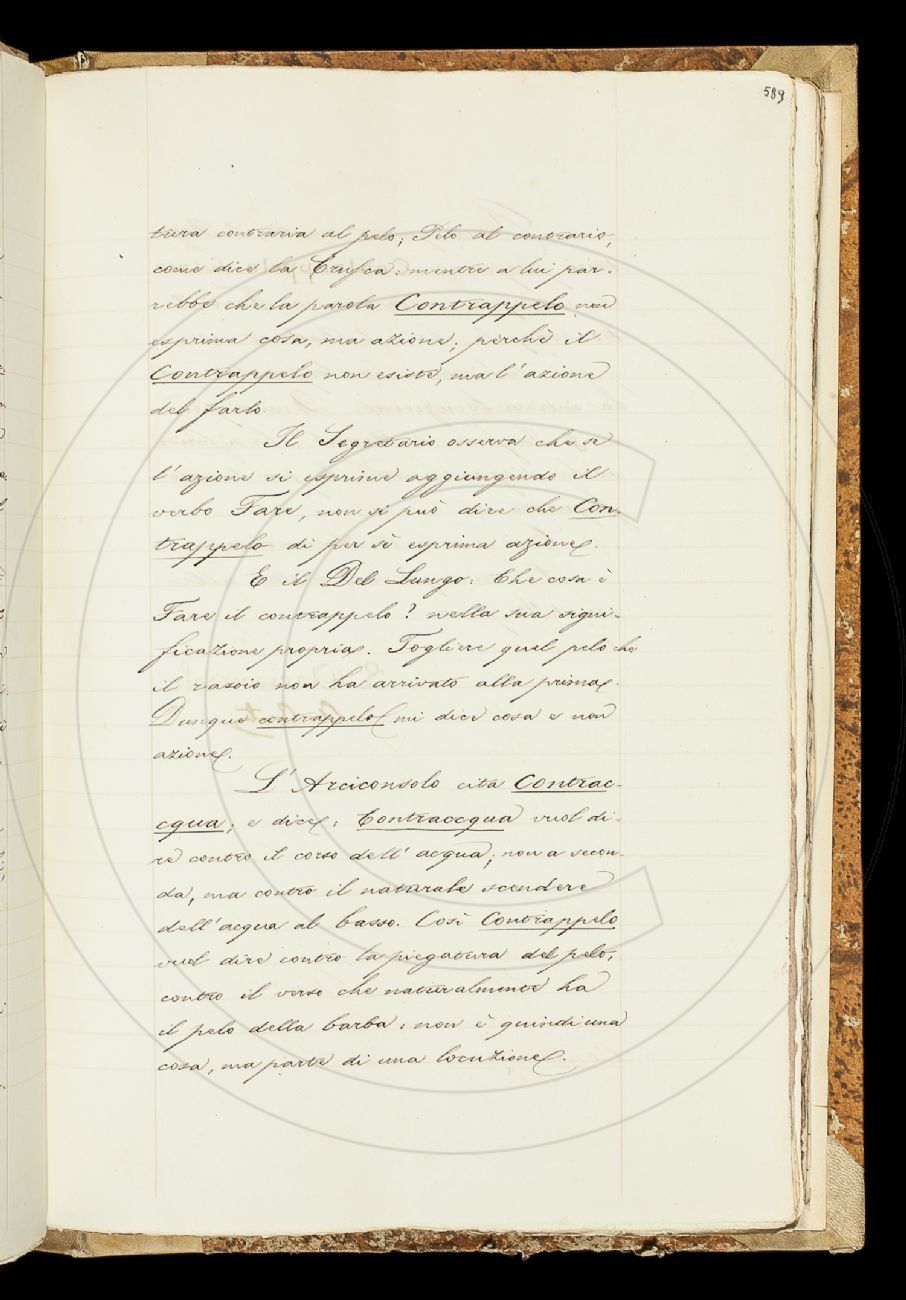 589
tura contraria al pelo; Pelo al contrario,
come dice la Crusca: mentre a lui par-
rebbe che la parola Contrappelo non
esprima cosa, ma azione; perchè il
Contrappelo non esiste, ma l'azione
del farlo.
Il Segretario osserva che se
l'azione si esprime aggiungendo il
verbo Fare, non si può dire che Con-
trappelo di per sè esprima azione.
E il Del Lungo: Che cosa è
Fare il contrappelo? nella sua signi-
ficazione propria. Togliere quel pelo che
il rasoio non ha arrivato alla prima.
Dunque contrappelo mi dice cosa e non
azione.
L'Arciconsolo cita Contrac-
cqua; e dice: Contraccqua vuol di-
re contro il corso dell'acqua; non a secon-
da, ma contro il naturale scendere
dell'acqua al basso. Così Contrappelo
vuol dire contro la piegatura del pelo,
contro il verso che naturalmente ha
il pelo della barba: non è quindi una
cosa, ma parte di una locuzione.